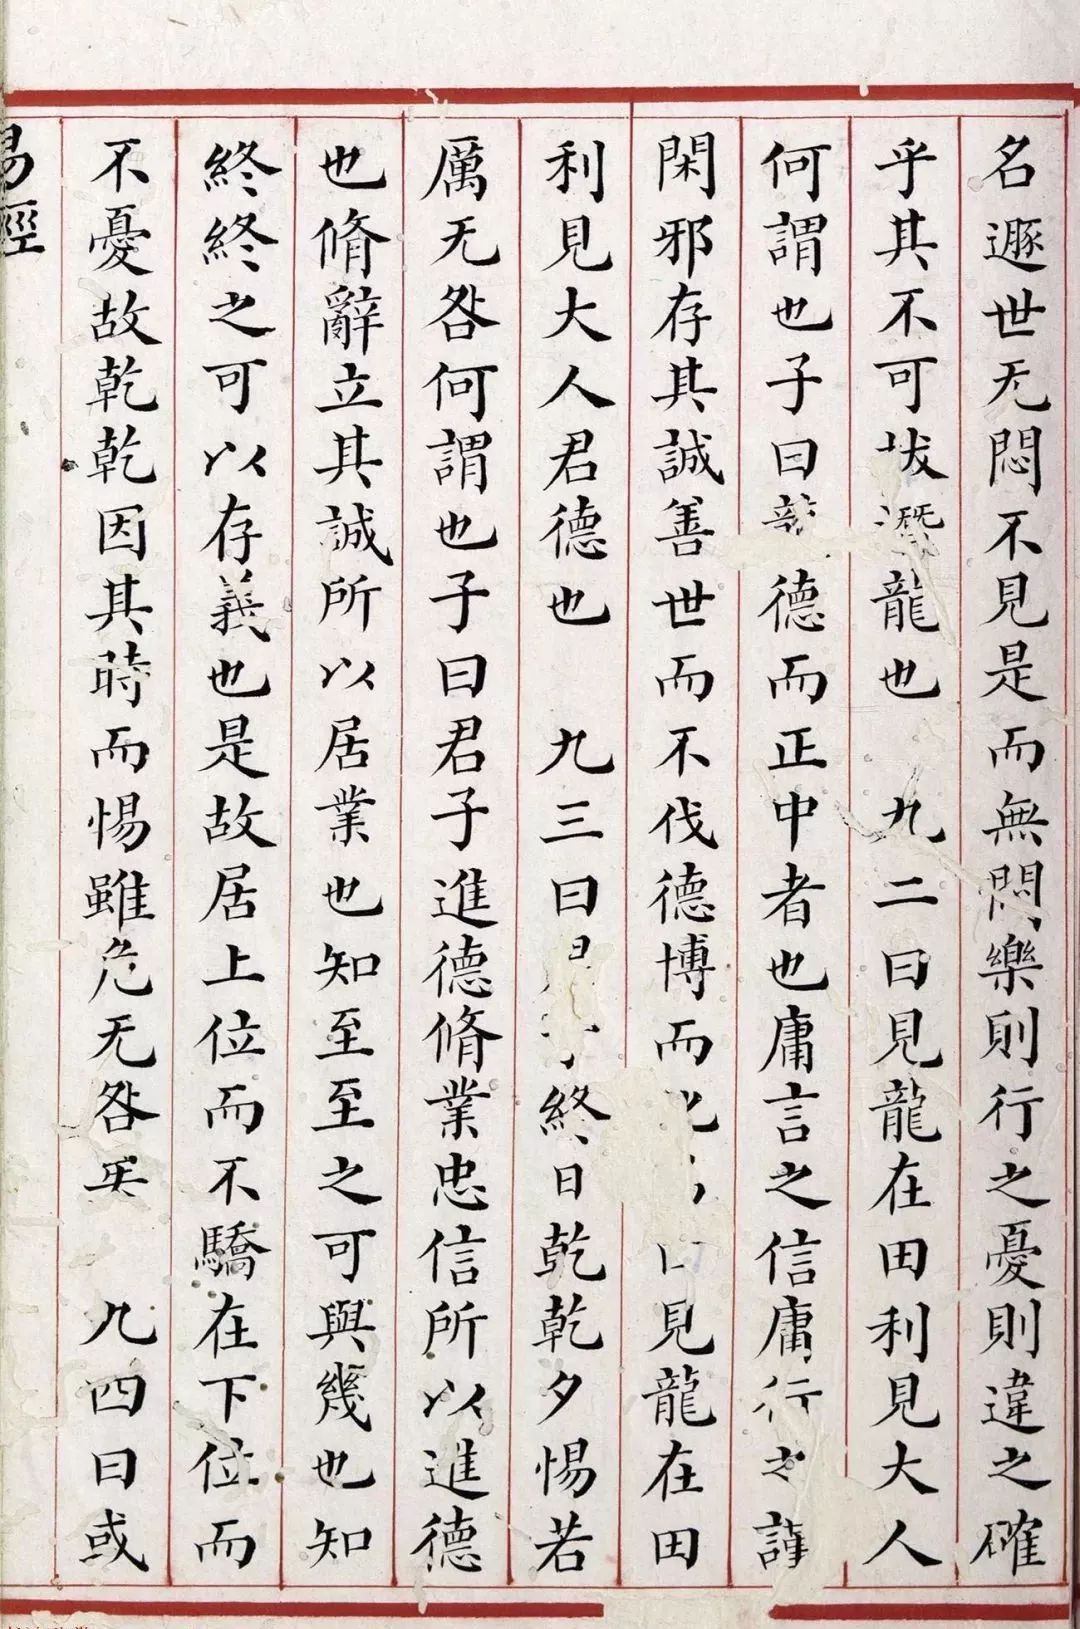 名遯世无悶不見是而無悶樂則行之憂則違之確
乎其不可拔潛龍也　九二曰見龍在田利見大人
何謂也子曰龍德而正中者也庸言之信庸行之謹
閑邪存其誠善世而不伐德博而 見龍在田
利見大人君德也　九三曰 終日乾乾夕惕若
厲无咎何謂也子曰君子進德脩業忠信所以進德
也脩辭立其誠所以居業也知至至之可與幾也知
終終之可以存義也是故居上位而不驕在下位而
不憂故乾乾因其時而惕雖危无咎矣　九四曰或
易經